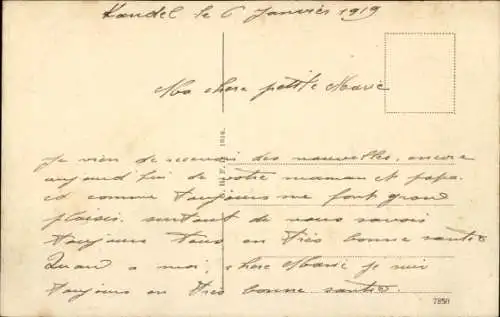 Kandel le 6 Janvier 1919
Ma chere petite Marie
Je vien de recevoir des nouvelles, encore
aujourd hui de votre maman et papa.
et comme toujours me font grand
plaisir. surtout de vous savoir
toujours tous en très bonne santée
Quand a moi, chere Marie je suis
toujours en très bonne santée.
7850